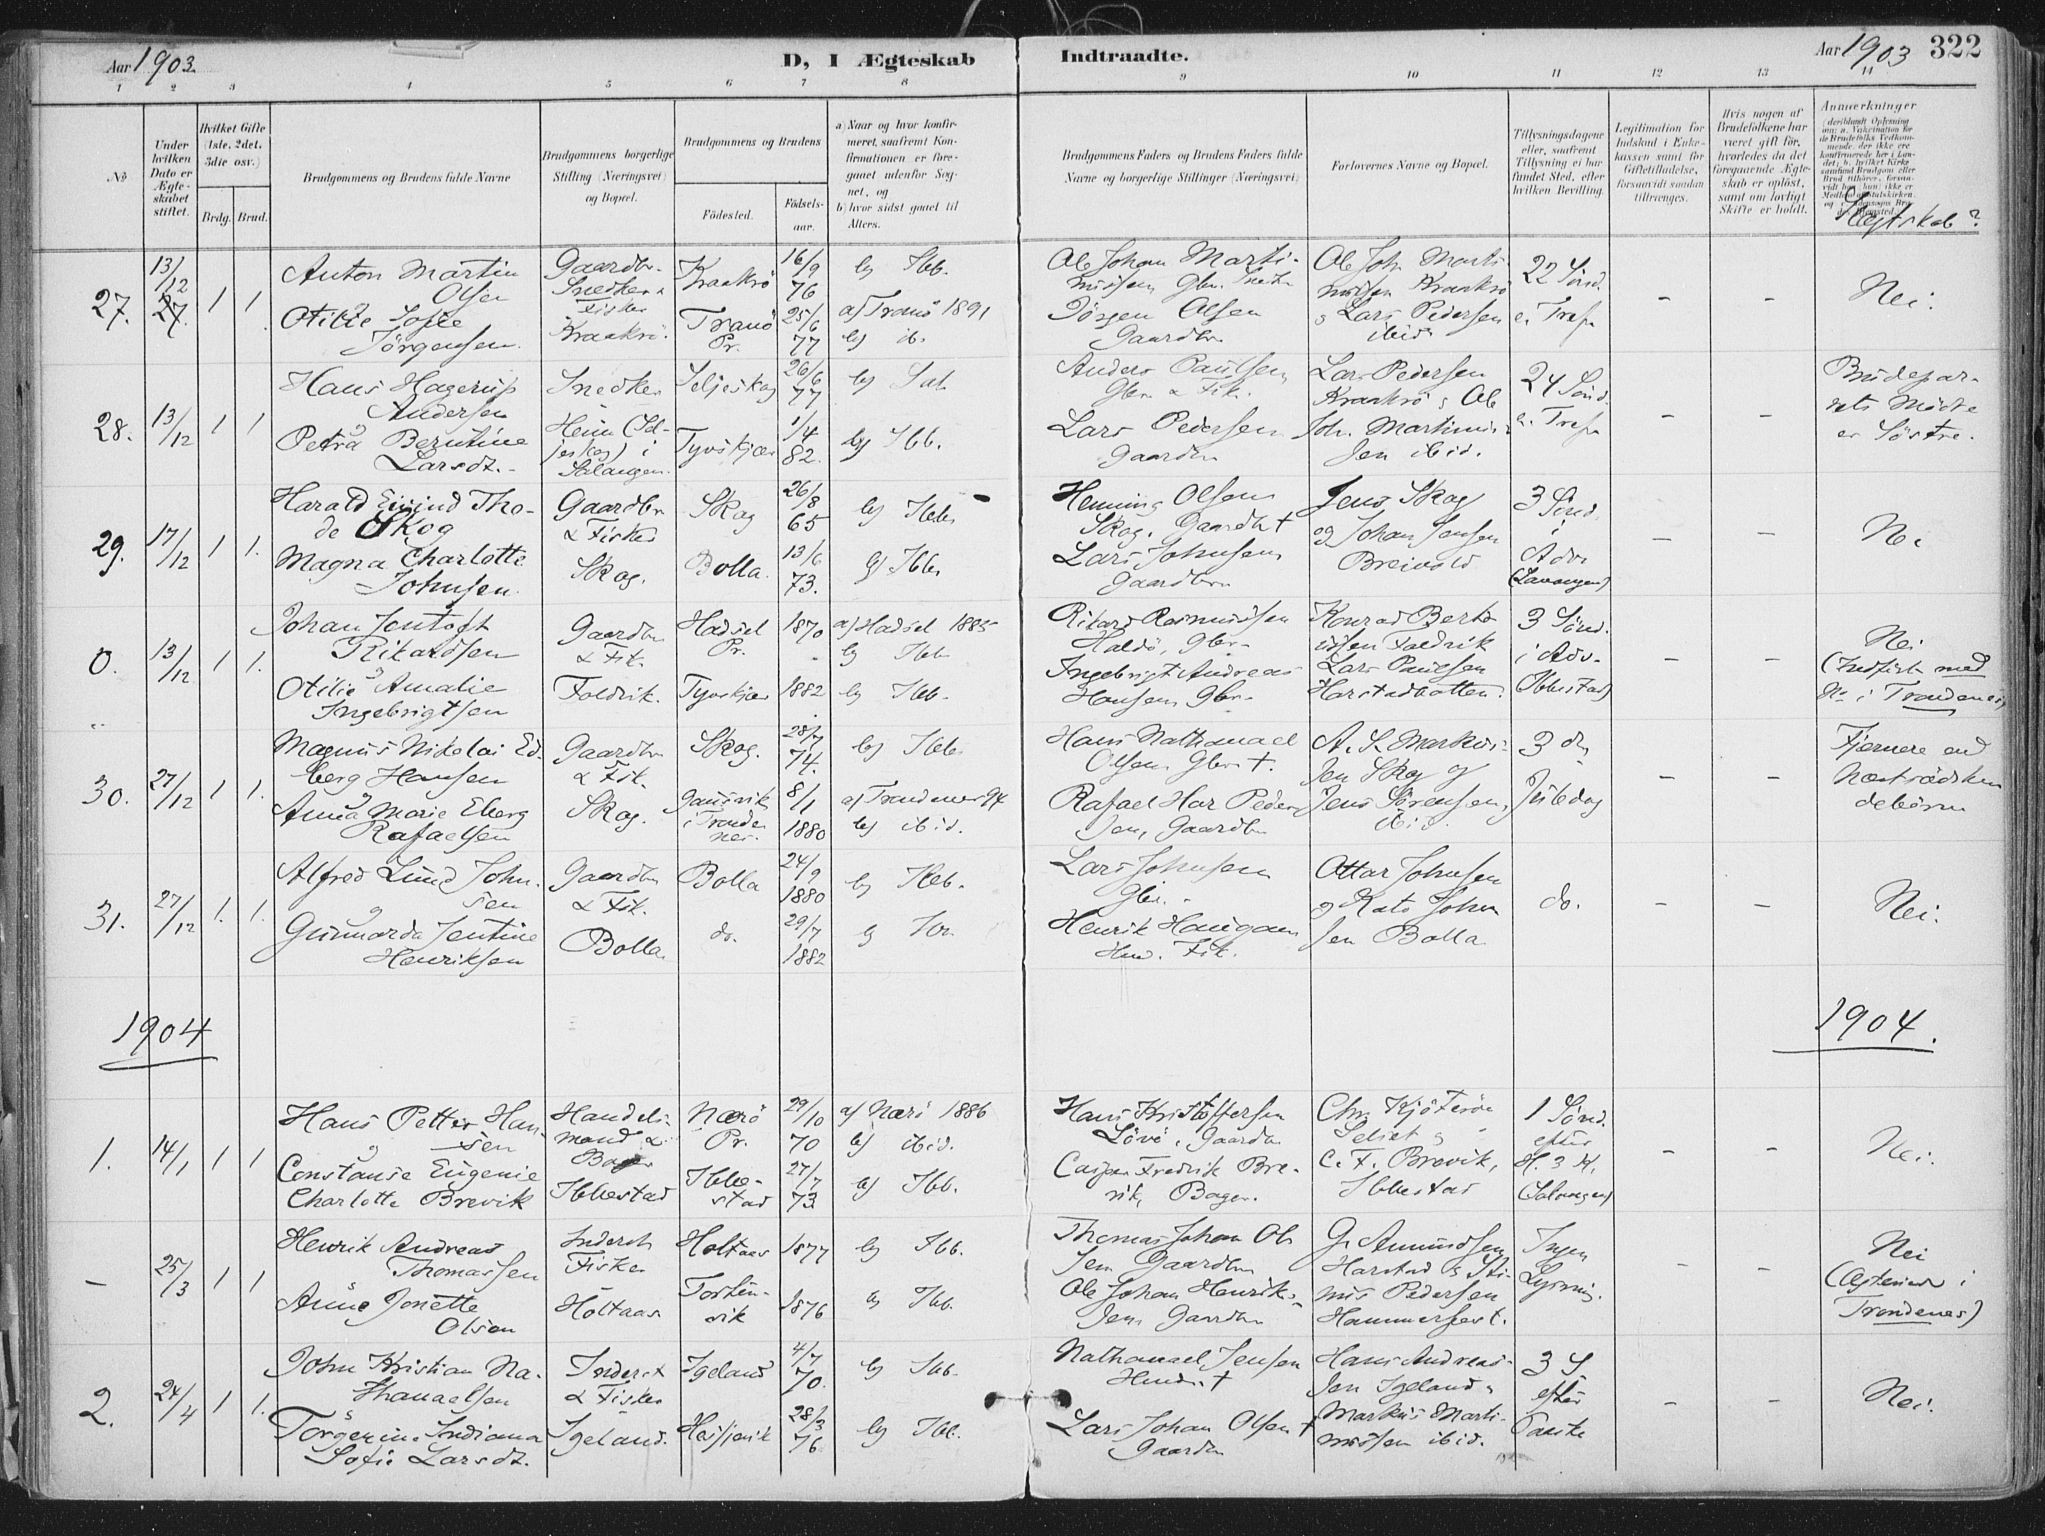 Aar 1903
D, I Ægteskab
Indtraadte.
Aar 1903
322
1 2 3 4 5 6 7 8 9 10 11 12 13
No
Under hvilken Dato er Ægteskabet stiftet.
Hvilket Gifte (1ste, 2det, 3die osv.)
Brdg. Brud.
Brudgommens og Brudens fulde Navne
Brudgommens borgerlige Stilling (Næringsvei) og Bopæl.
Brudgommens og Brudens
Födested.
Födselsaar.
a) Naar og hvor konfirmeret, saafremt Konfirmationen er foregaaet udenfor Sognet, og
b) hvor sidst gaaet til Alters.
Brudgommens Faders og Brudens Faders fulde Navne og borgerlige Stillinger (Næringsvei)
Forlovernes Navne og Bopæl.
Tillysningsdagene eller, saafremt Tillysning ei har fundet Sted, efter hvilken Bevilling.
Legitimation for Indskud i Enkekassen samt for Giftetilladelse, forsaavidt saadan tiltrænges.
Hvis nogen af Brudefolkene har været gift för, hvorledes da det foregaaende Ægteskab er oplöst, samt om lovligt Skifte er holdt.
Anmerkninger
Slegtskab?
27.
13/12
1 1
Anton Martin
Olsen
Otilie Sofie
Jörgensen.
Gaardbr.
Snedker &
Fisker
Kraakrö.
Kraakrö
Tranö
Pr.
16/9
76
25/6
77
b) Ibb.
a) Tranö 1891
b) ib.
Ole Johan Marti-
nussen Gbr. Snedk.
Jörgen Olsen
Gaardbr
Ole Joh. Marti-
nussen Kraakrö
& Lars Pedersen
ibid
22 Sönd.
e. Tref.
-
-
Nei.
28.
13/12
1 1
Hans Hagerup
Andersen
Petra Berntine
Larsdt.
Snedker
Heim (Sel-
jeskog) i
Salangen.
Seljeskog
Tyvskjær
26/6
77
1/4
82.
b) Sal.
b) Ibb.
Anders Paulsen
Gbr. & Fisk.
Lars Pedersen
Gaardbr
Lars Pedersen
Kraakrö & Ole
Joh. Martinus-
sen ibid.
24 Sönd.
e. Tref.
-
-
Brudepar-
rets Mödre
er Söstre.
29.
17/12
1 1.
Harald Eivind Tho-
de Skog
Magna Charlotte
Johnsen.
Gaardbr
& Fisker
Skog.
Skog
Bolla.
26/8
65
13/6
73.
b) Ibb.
b) Ibb.
Henning Olsen
Skog, Gaardbr †
Lars Johnsen
Gaardbr
Jens Skog
og Johan Jensen
Breivold
3 Sönd.
i
Adv.
(Lavangen)
-
-
Nei
0.
13/12
1 1.
Johan Jentoft
Rikardsen
Otilie Amalie
Ingebrigtsen
Gaardbr
& Fik.
Foldvik.
Hadsel
Pr.
Tyvskjær
1870
1882
a) Hadsel 1885
b) Ibb.
b) Ibb.
Rikard Rasmussen
Haldö, Gbr.
Ingebrigt Andreas
Hansen Gbr.
Konrad Berte-
ussen Foldvik
Lars Paulsen
Harstadbotten.
3 Sönd.
i Adv.
Ibbestad)
-
-
Nei
(Indfört med
No i Trondenes)
30.
27/12
1 1.
Magnus Nikolai Ed-
berg Hansen
Anna Marie Eberg
Rafaelsen
Gaardbr
& Fik.
Skog.
Skog.
Gausvik
i Tronde
nes.
28/7
74.
8/1
1880
b) Ibb.
a) Trondenes 94
b) ibid.
Hans Nathanael
Olsen Gbr. †.
Rafael Har Peder-
sen, Gaardbr
A. S. Markus-
sen Skog og
Jens Sörensen,
ibid.
3 d
Juledag
-
-
Fjernere end
Næstsödsken
debörn
31.
27/12
1. 1.
Alfred Lund John-
sen
Gunnarda Jentine
Henriksen
Gaardbr
& Fik.
Bolla.
Bolla
do.
24/9
1880
29/7
1882
b) Ibb.
b) Ibb.
Lars Johnsen
Gbr.
Henrik Haugan
Hmd. Fik.
Ottar Johnsen
og Kato John
sen Bolla
do.
-
-
Nei.
1904
1904.
1.
14/1
1 1
Hans Petter Han-
sen
Constanse Eugenie
Charlotte Brevik
Handels-
mand &
Bager
Ibbestad
Nærö
Pr.
Ibbe-
stad
29/10
70
27/7
73
a) Nærö 1886
b) ibid.
b) Ibb.
Hans Kristoffersen
Lövö, Gaardbr
Casper Fredrik Bre-
vik, Bager.
Chr. Kjöterön
C. F. Brevik,
Ibbestad
1 Sönd.
efter
H. 3 K.
(Salangen)
-
-
Nei.
-
25/3
1 1
Henrik Andreas
Thomassen
Anne Jonette
Olsen
Inderst
Fisker
Holtaas
Holtaas
Forsten-
vik
1877
1876
b) Ibb.
b) Ibb.
Thomas Johan Ol-
sen Gaardbr
Ole Johan Henrik-
sen Gaardbr
G. Amundsen
Harstad & Sti-
nus Pedersen
Hammerfest.
Ingen
Lysning.
-
-
Nei
(Egteviet i
Trondenes)
2.
24/4
1 1.
John Kristian Na-
thanaelsen
Jörgenine Indiana
Sofie Larsdt.
Inderst
& Fisker
Igeland.
Igeland
4/7
70.
28/3
76
b) Ibb.
b) Ibb.
Nathanael Jensen
Hmd. †
Lars Johan Olsen †
Gaardbr
Hans Andreas-
sen Igeland &
Markus Marti-
nussen ibid.
3 S.
efter
Paaske
-
-
Nei.